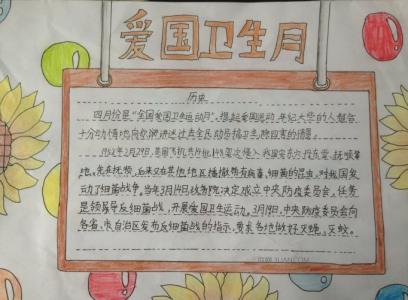 爱国卫生月
历史
四月份是"全国爱国卫生运动月"。提起爱国运动,年纪大些的人都会
十分动情地向你讲述过去全民动员搞卫生,除四害的情景。
1952年2月29日,美国飞机共计批148架次侵入我国东北丹东市、抚顺等
地。先在抚顺,后来又在其他地区播撒带有病毒、细菌的昆虫,对我国发
动了细菌战争。当年3月14日政务院决定成立中央防疫委员会,任务
是领导反细菌战,开展爱国卫生运动。3月19日,中央防疫委员会向
各省、市自治区发布反细菌战的指示,要求各地做好灭蝇、灭蚊。